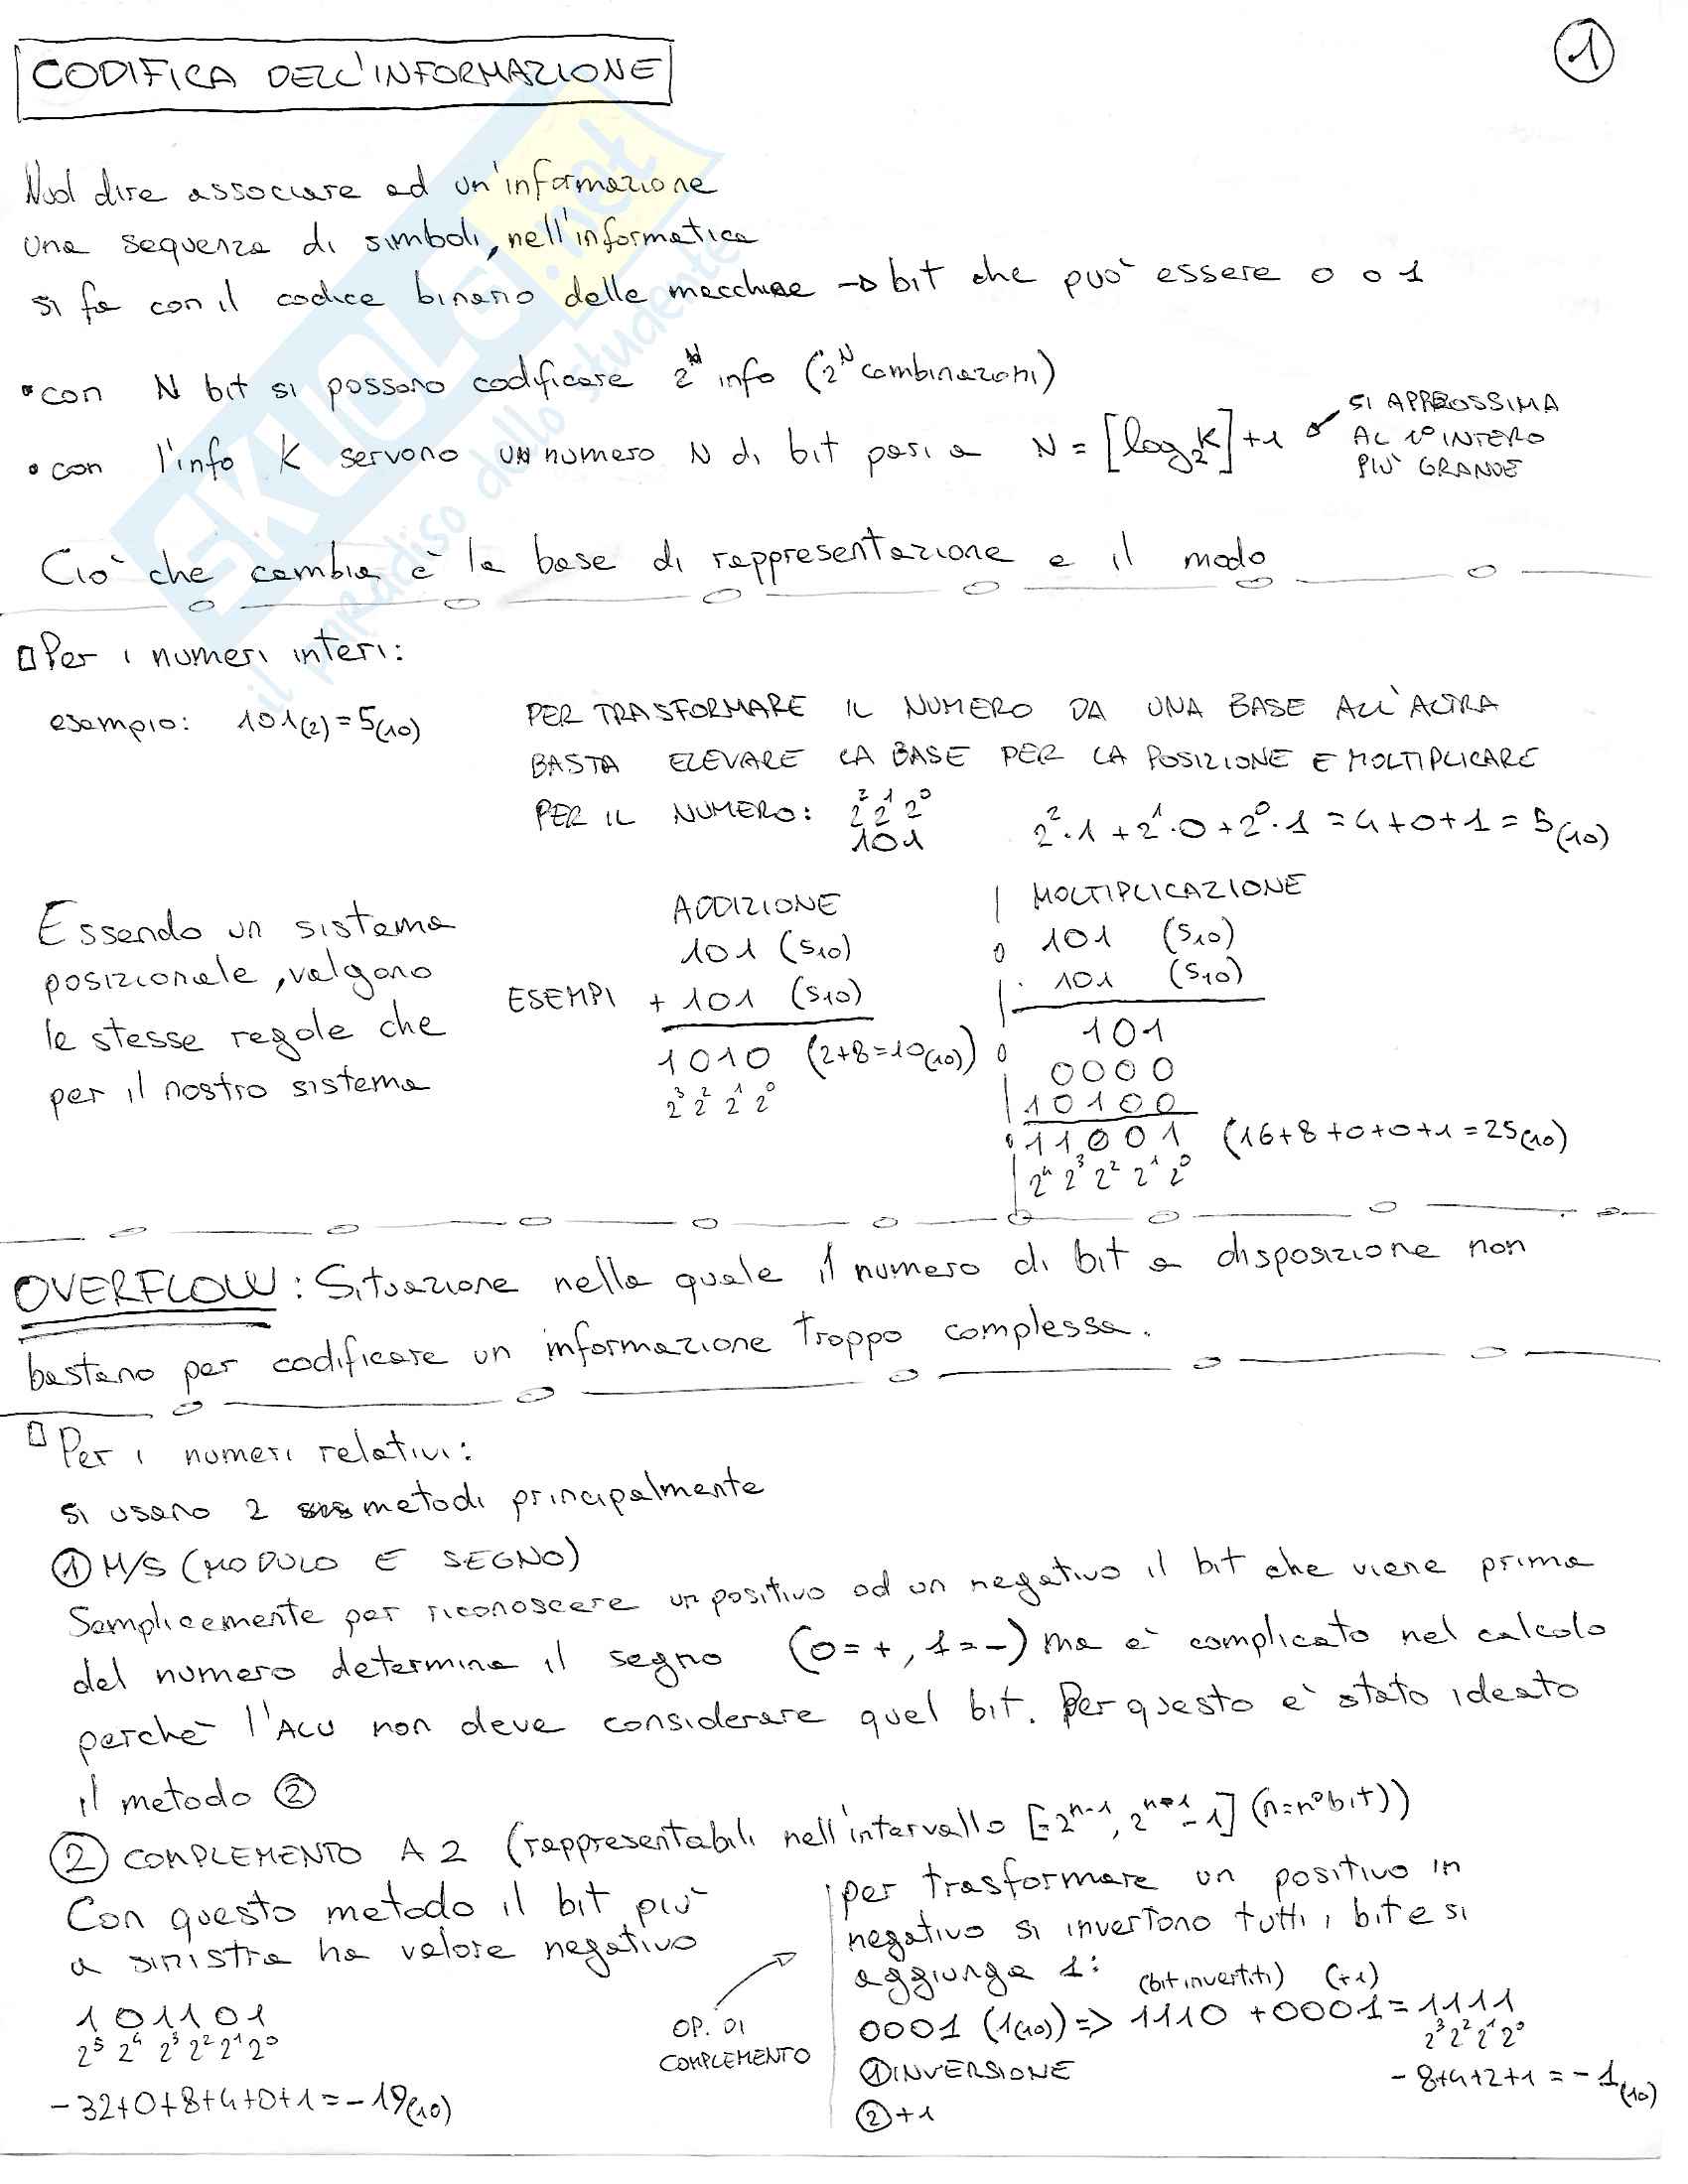 1
CODIFICA DELL'INFORMAZIONE
Vuol dire associare ad un'informazione
una sequenza di simboli, nell'informatica
si fa con il codice binario delle macchine → bit che può essere 0 o 1
• con N bit si possono codificare 2^N info (2^N combinazioni)
• con l'info K servono un numero N di bit pari a N = [log₂K] + 1
SI APPROSSIMA
AL 1° INTERO
PIÙ GRANDE
Ciò che cambia è la base di rappresentazione e il modo
Per i numeri interi:
esempio: 101(2) = 5(10)
PER TRASFORMARE IL NUMERO DA UNA BASE ALL'ALTRA
BASTA ELEVARE LA BASE PER LA POSIZIONE E MOLTIPLICARE
PER IL NUMERO: 2² 2¹ 2⁰
101
2²·1 + 2¹·0 + 2⁰·1 = 4+0+1 = 5(10)
Essendo un sistema
posizionale, valgono
le stesse regole che
per il nostro sistema
ESEMPI
ADDIZIONE
101 (5₁₀)
+ 101 (5₁₀)
1010 (2+8=10(10))
2³ 2² 2¹ 2⁰
MOLTIPLICAZIONE
101 (5₁₀)
· 101 (5₁₀)
101
0000
10100
11001 (16+8+0+0+1=25(10))
2⁴ 2³ 2² 2¹ 2⁰
OVERFLOW: Situazione nella quale il numero di bit a disposizione non
bastano per codificare un informazione troppo complessa.
Per i numeri relativi:
si usano 2 metodi principalmente
① M/S (MODULO E SEGNO)
Semplicemente per riconoscere un positivo ad un negativo il bit che viene prima
del numero determina il segno (0=+, 1=-) ma è complicato nel calcolo
perchè l'ALU non deve considerare quel bit. Per questo è stato ideato
il metodo ②
② COMPLEMENTO A 2 (rappresentabili nell'intervallo [-2ⁿ⁻¹, 2ⁿ⁻¹-1] (n=n° bit))
Con questo metodo il bit più
a sinistra ha valore negativo
101101
2⁵ 2⁴ 2³ 2² 2¹ 2⁰
-32+0+8+4+0+1=-19(10)
OP. DI
COMPLEMENTO
per trasformare un positivo in
negativo si invertono tutti i bit e si
aggiunge 1:
(bit invertiti) (+1)
0001 (1(10)) => 1110 + 0001 = 1111
2³ 2² 2¹ 2⁰
① INVERSIONE
-8+4+2+1=-1(10)
② +1
SKUOLA.net
il paradiso dello studente